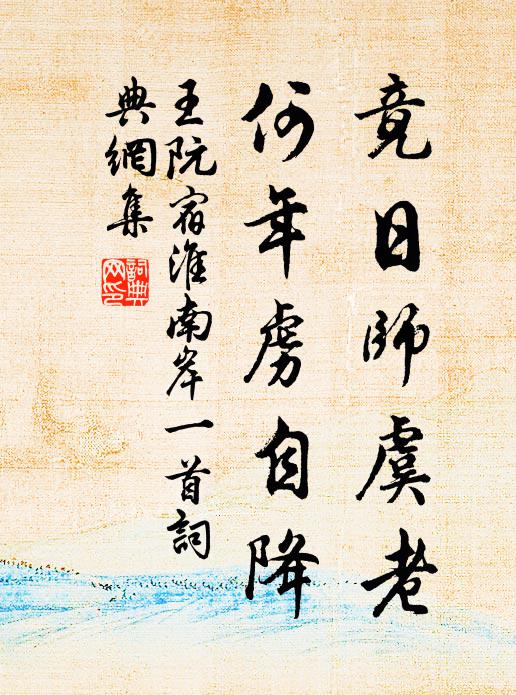 竟日師虞老
何年虜自降
王阮宿淮南岸一首詞
典網集
詞典網印